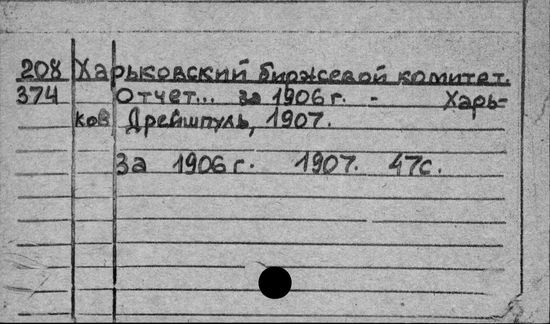 208 Харьковский биржевой комитет.
374 Отчет... за 1906 г. - Харь-
ков, Дрейшпуль, 1907.
За 1906 г. 1907. 47с.